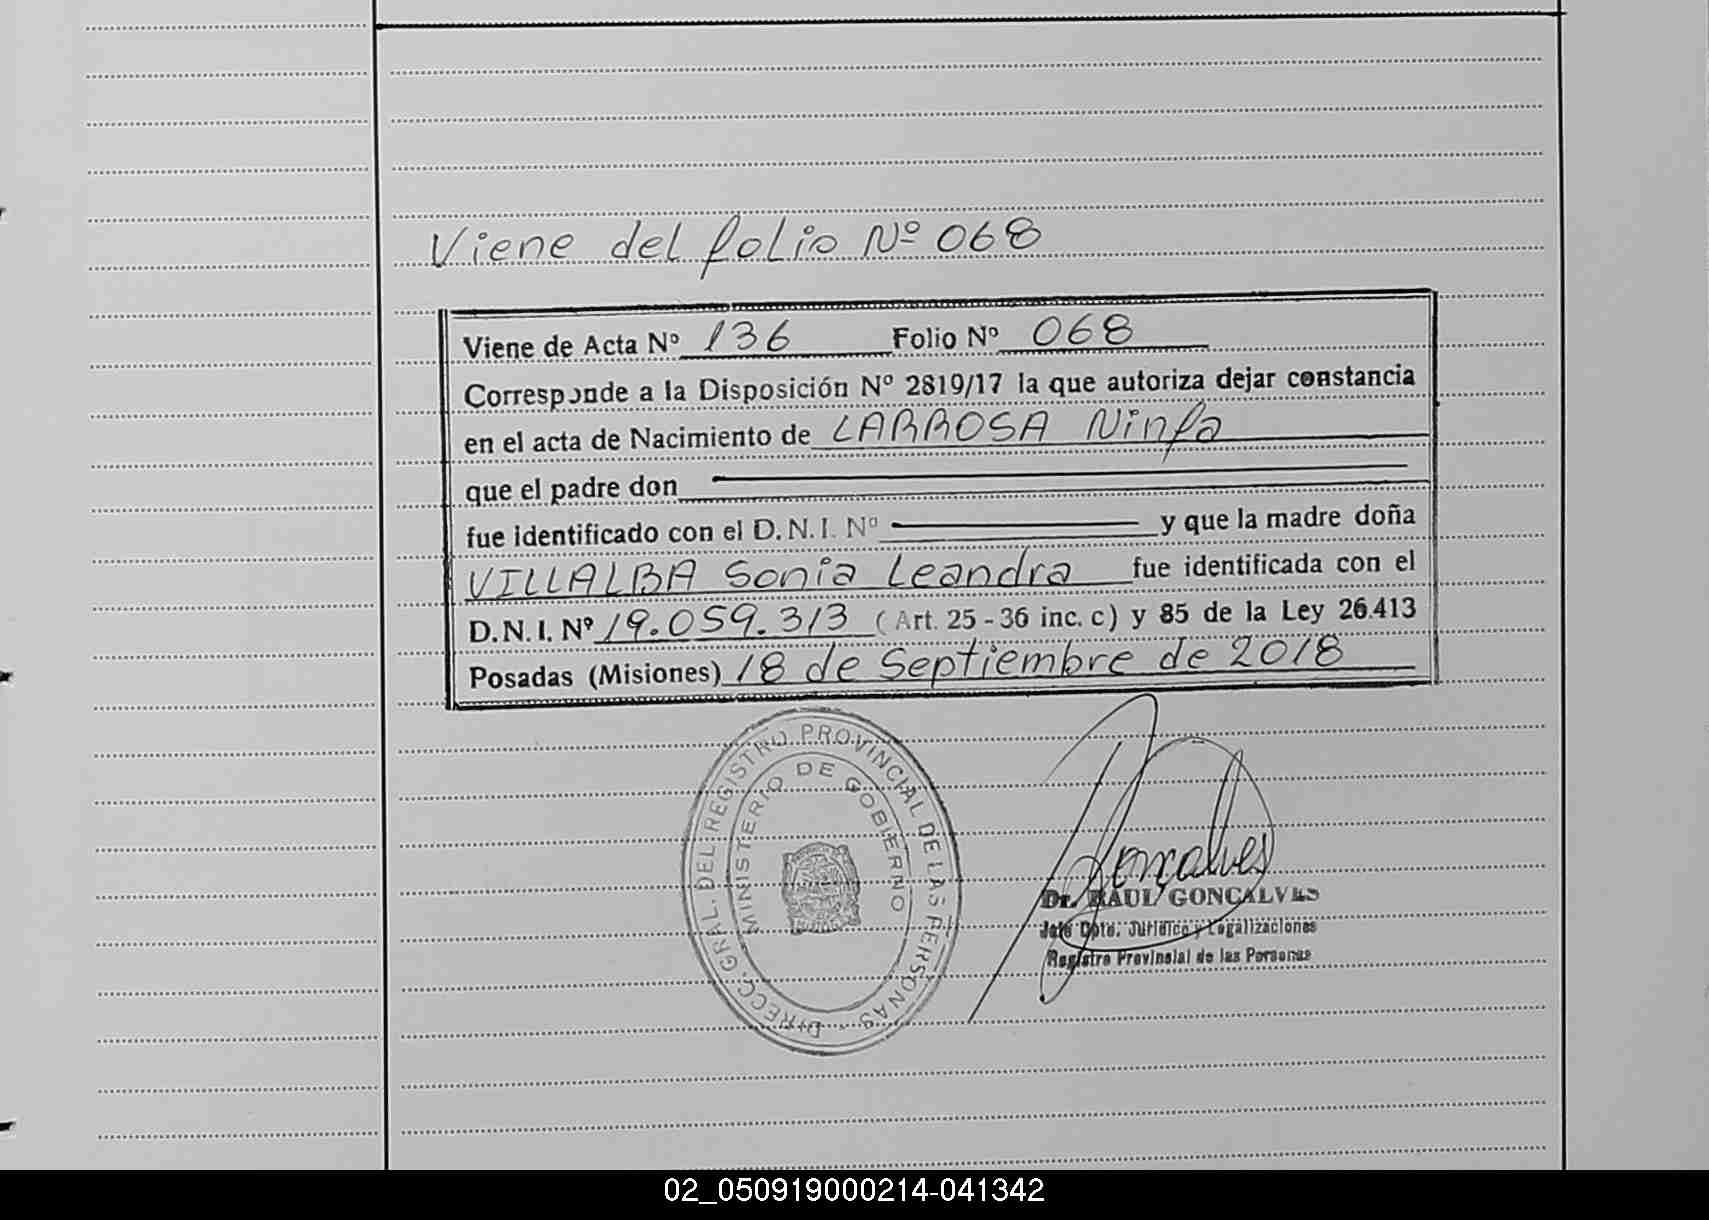 Viene del folio Nº 068
Viene de Acta Nº 136 Folio Nº 068
Corresponde a la Disposición Nº 2819/17 la que autoriza dejar constancia
en el acta de Nacimiento de LARROSA Ninfa
que el padre don
fue identificado con el D.N.I. Nº y que la madre doña
VILLALBA Sonia Leandra fue identificada con el
D.N.I. Nº 19.059.313 (Art. 25 - 36 inc. c) y 85 de la Ley 26.413
Posadas (Misiones) 18 de Septiembre de 2018
DIRECC. GRAL. DEL REGISTRO PROVINCIAL DE LAS PERSONAS
MINISTERIO DE GOBIERNO
Goncalves
Dr. RAUL GONCALVES
Jefe Dpto. Jurídico y Legalizaciones
Registro Provincial de las Personas
02_050919000214-041342